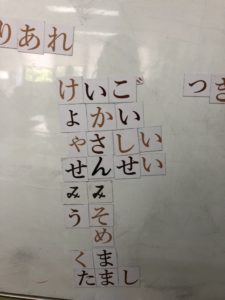 りあれ
けいこ
つき
よかい
やさしい
せんせい
みみ
うそ
め
くま
たましし